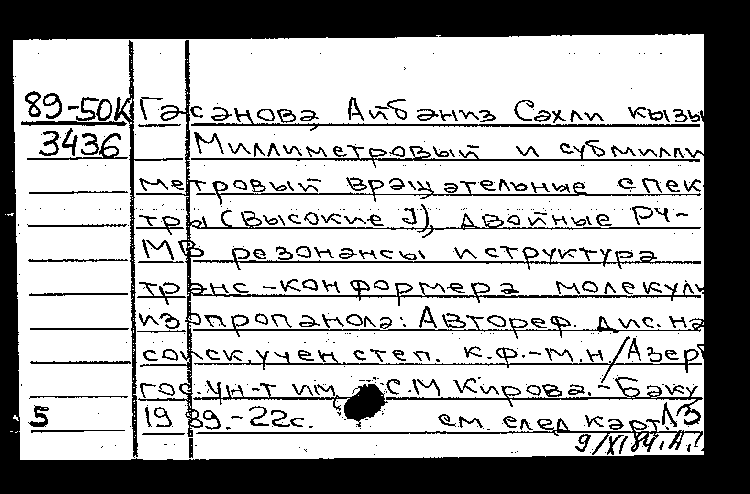 89-50К Гасанова, Айбаниз Сахли кызы
3436 Миллиметровый и субмилли
метровый вращательные спек
тры (высокие J), двойные РЧ-
МВ резонансы и структура
транс-конформера молекулы
изопропанола: Автореф. дис. на
соиск. учен степ. к.ф.-м.н./Азерб
гос. ун-т им С.М Кирова.-Баку
5 1989.-22с. см след карт